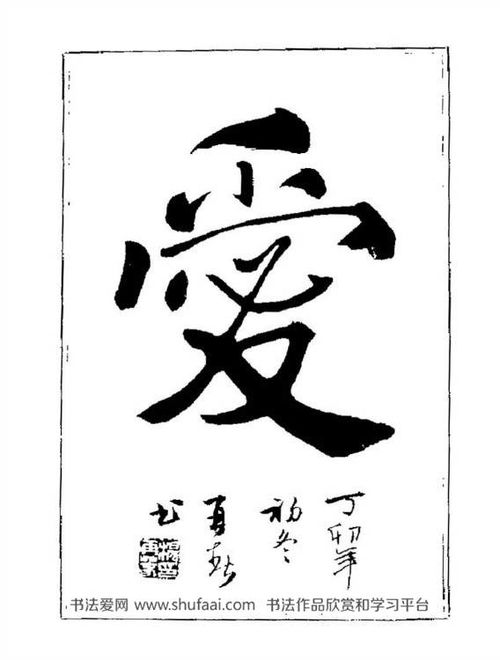 愛
丁卯年
初冬
再春
书
书法爱网 www.shufaai.com 书法作品欣赏和学习平台